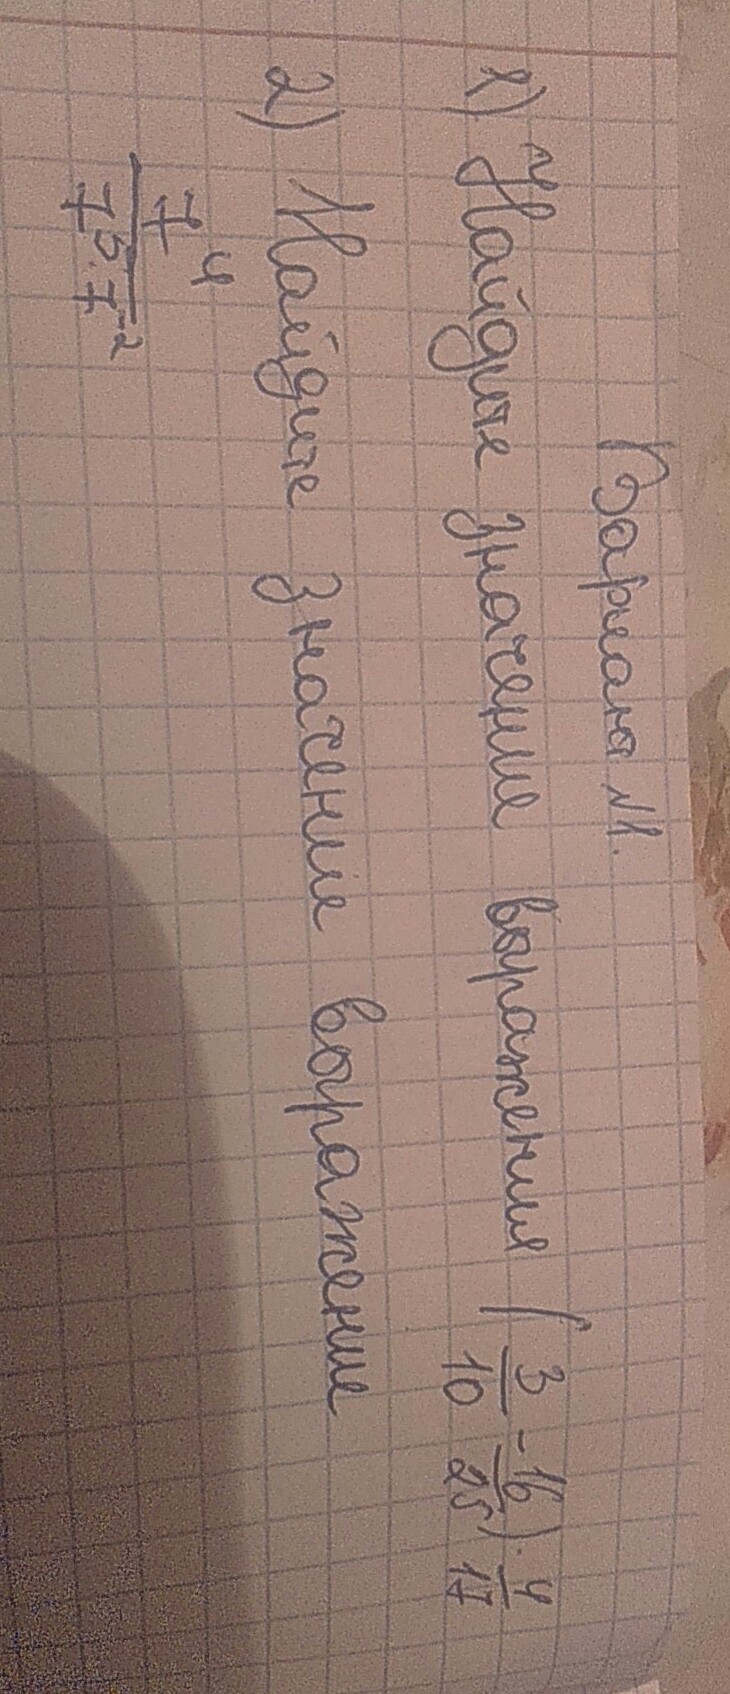 Вариант №1.
1) Найдите значение выражения (3/10 - 16/25) · 4/17
2) Найдите значение выражение
7^4 / (7^3 · 7^-2)